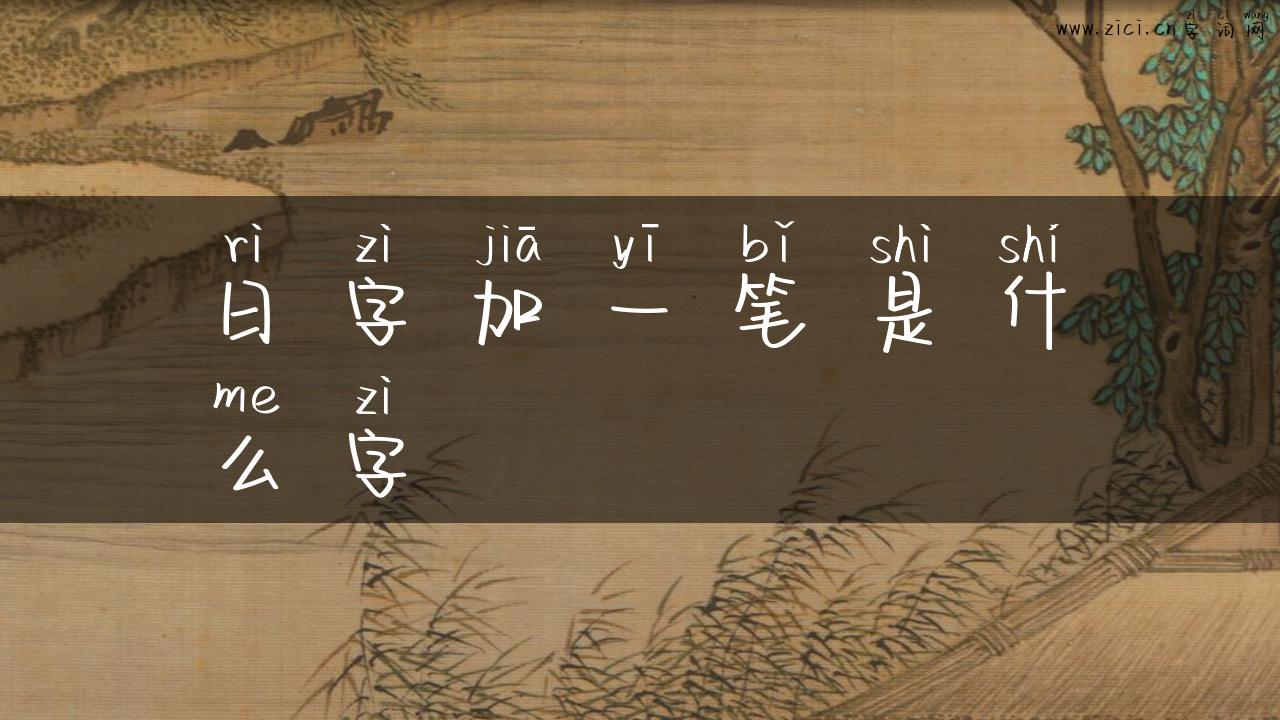 zì cí wǎng
www.zici.cn 字 词 网
rì zì jiā yī bǐ shì shí
日 字 加 一 笔 是 什
me zì
么 字